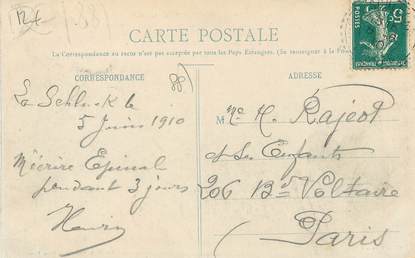 12f
CARTE POSTALE
La Correspondance au recto n'est pas acceptée par tous les Pays Étrangers. (Se renseigner à la Poste)
CORRESPONDANCE
ADRESSE
5c
POSTES
88
La Schlucht le
5 Juin 1910
M'écrire Epinal
pendant 3 jours
Henri
Me H. Rajeot
et ses Enfants
206 Bd Voltaire
Paris